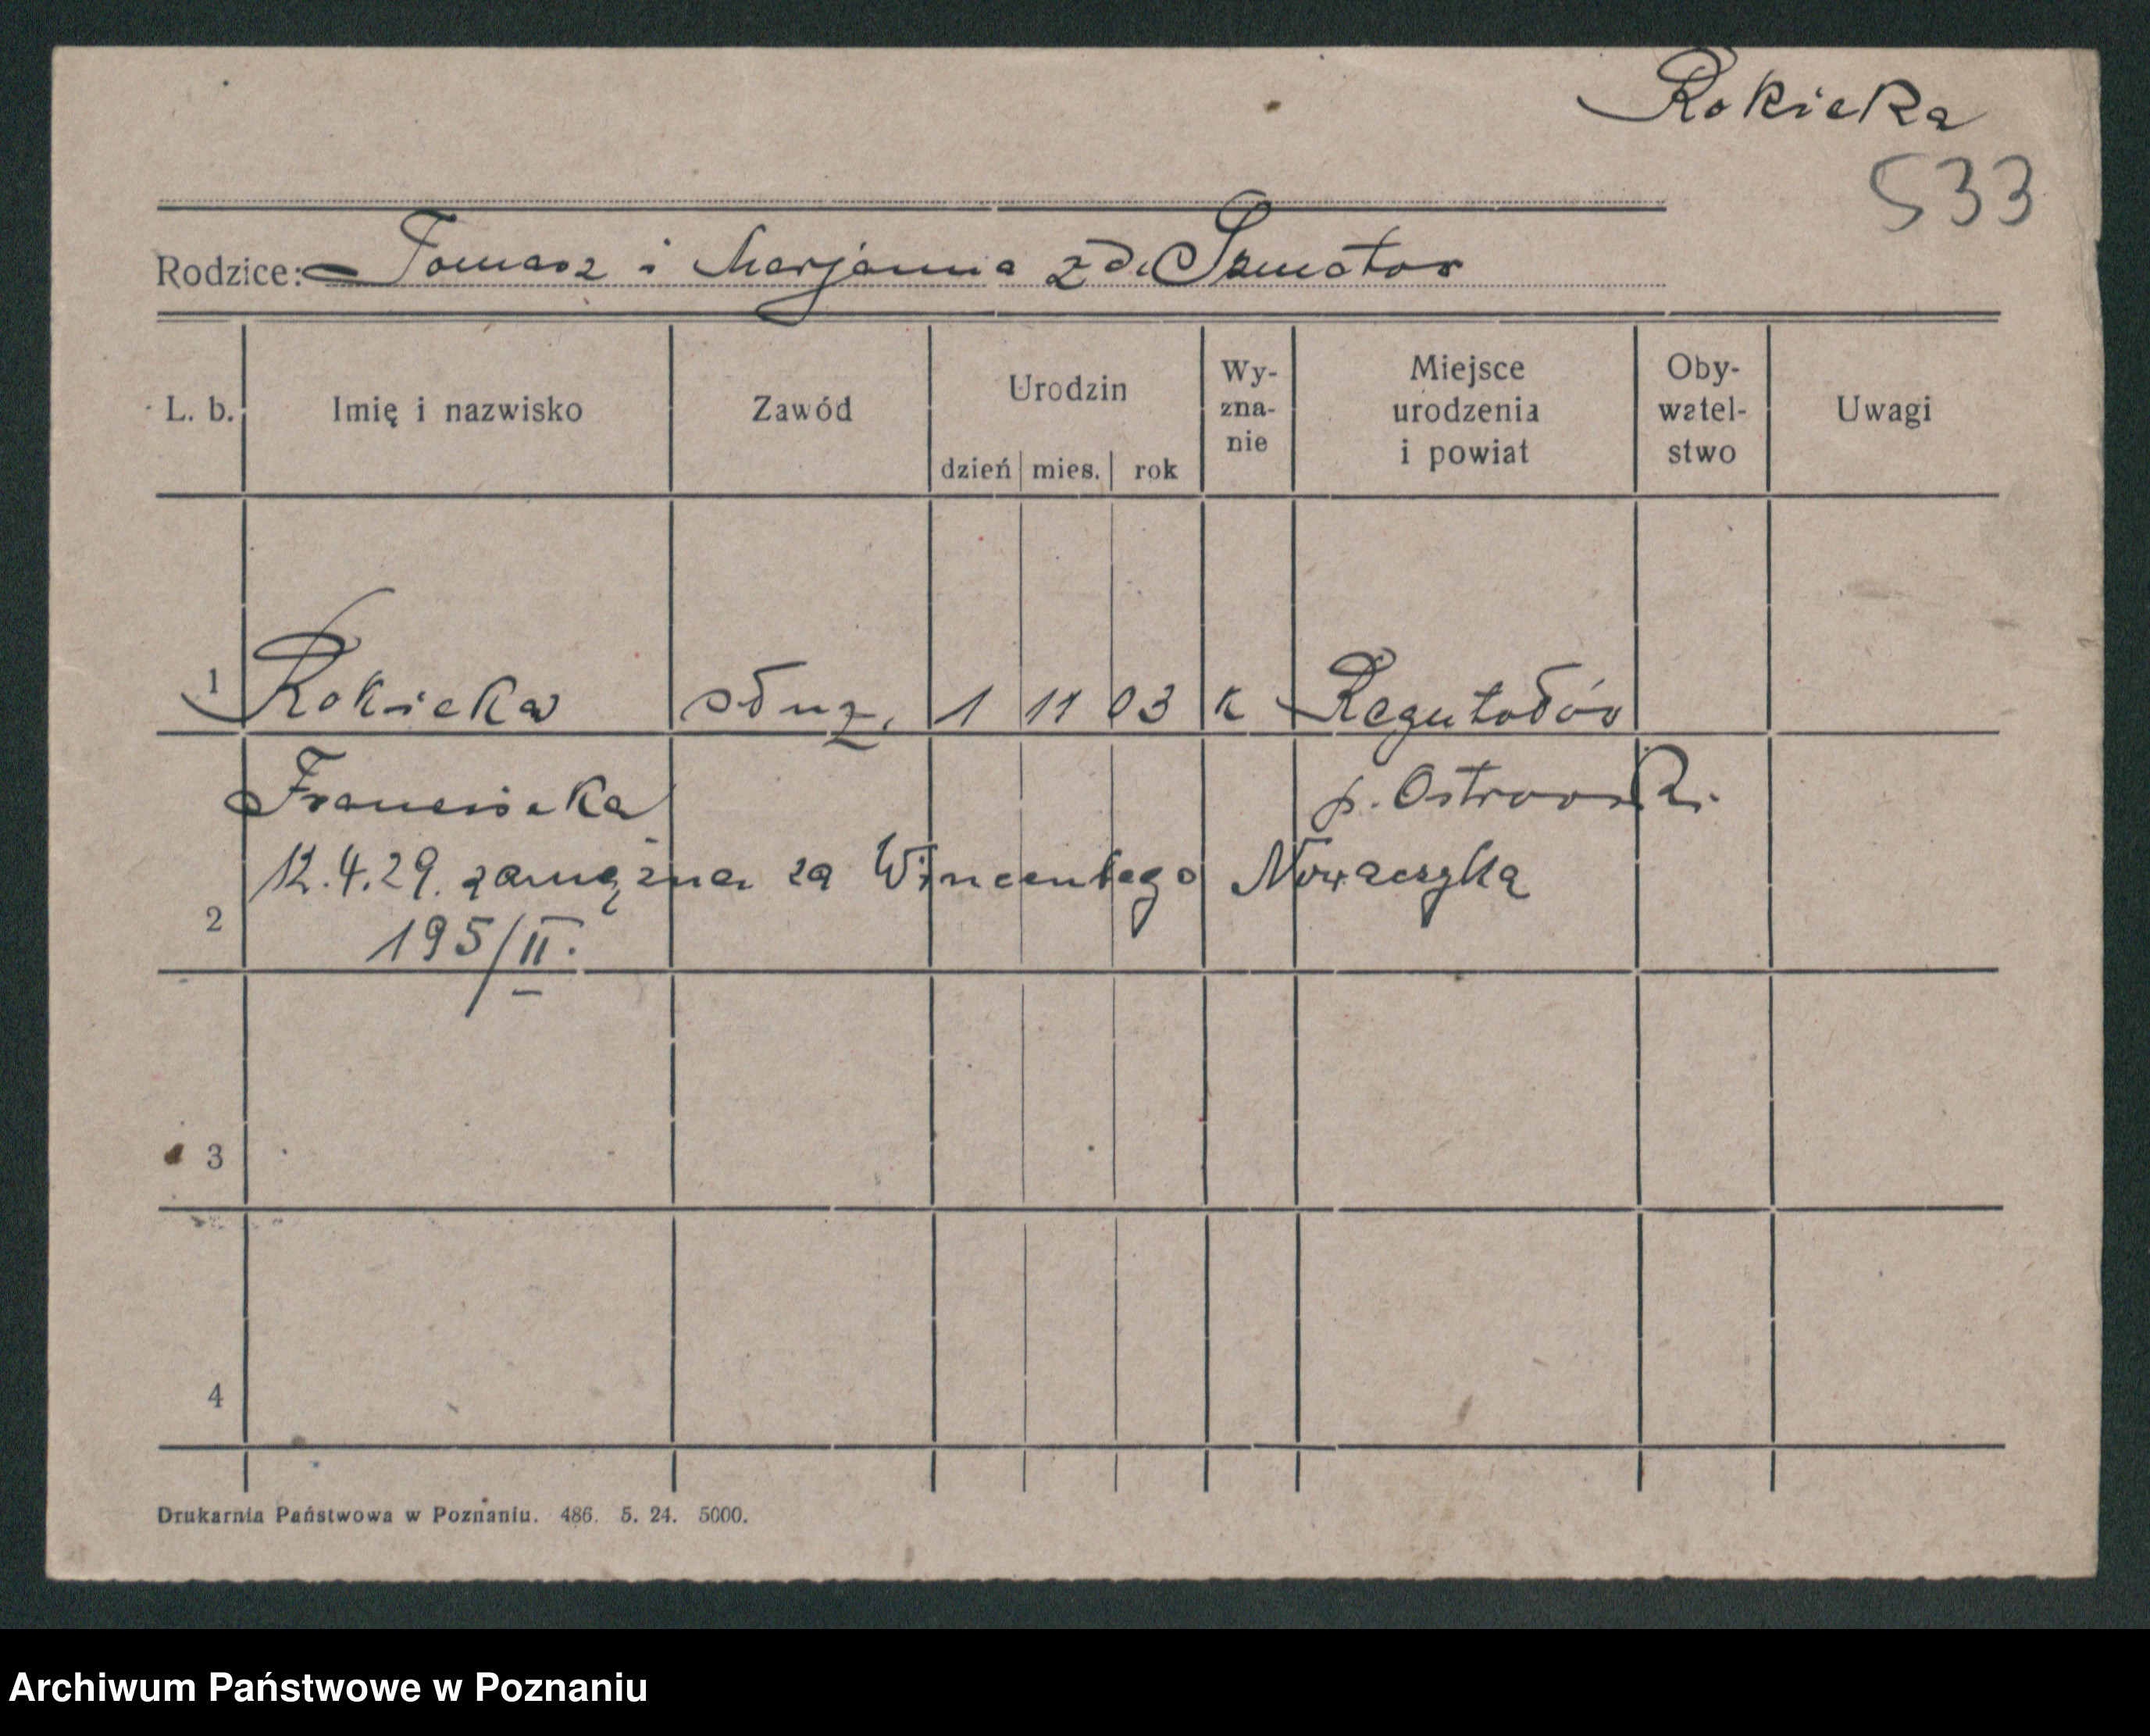 Rokicka
533
Rodzice: Tomasz i Marjanna z d. Szmator
L. b. Imię i nazwisko Zawód Urodzin dzień mies. rok Wy-zna-nie Miejsce urodzenia i powiat Oby-watel-stwo Uwagi
1 Rokicka służ. 1 11 03 k
Franciszka p. Ostrowski
12.4.29. zamężna za Wincentego Nowaczyka
2 195/II.
3
4
Drukarnia Państwowa w Poznaniu. 486. 5. 24. 5000.
Archiwum Państwowe w Poznaniu